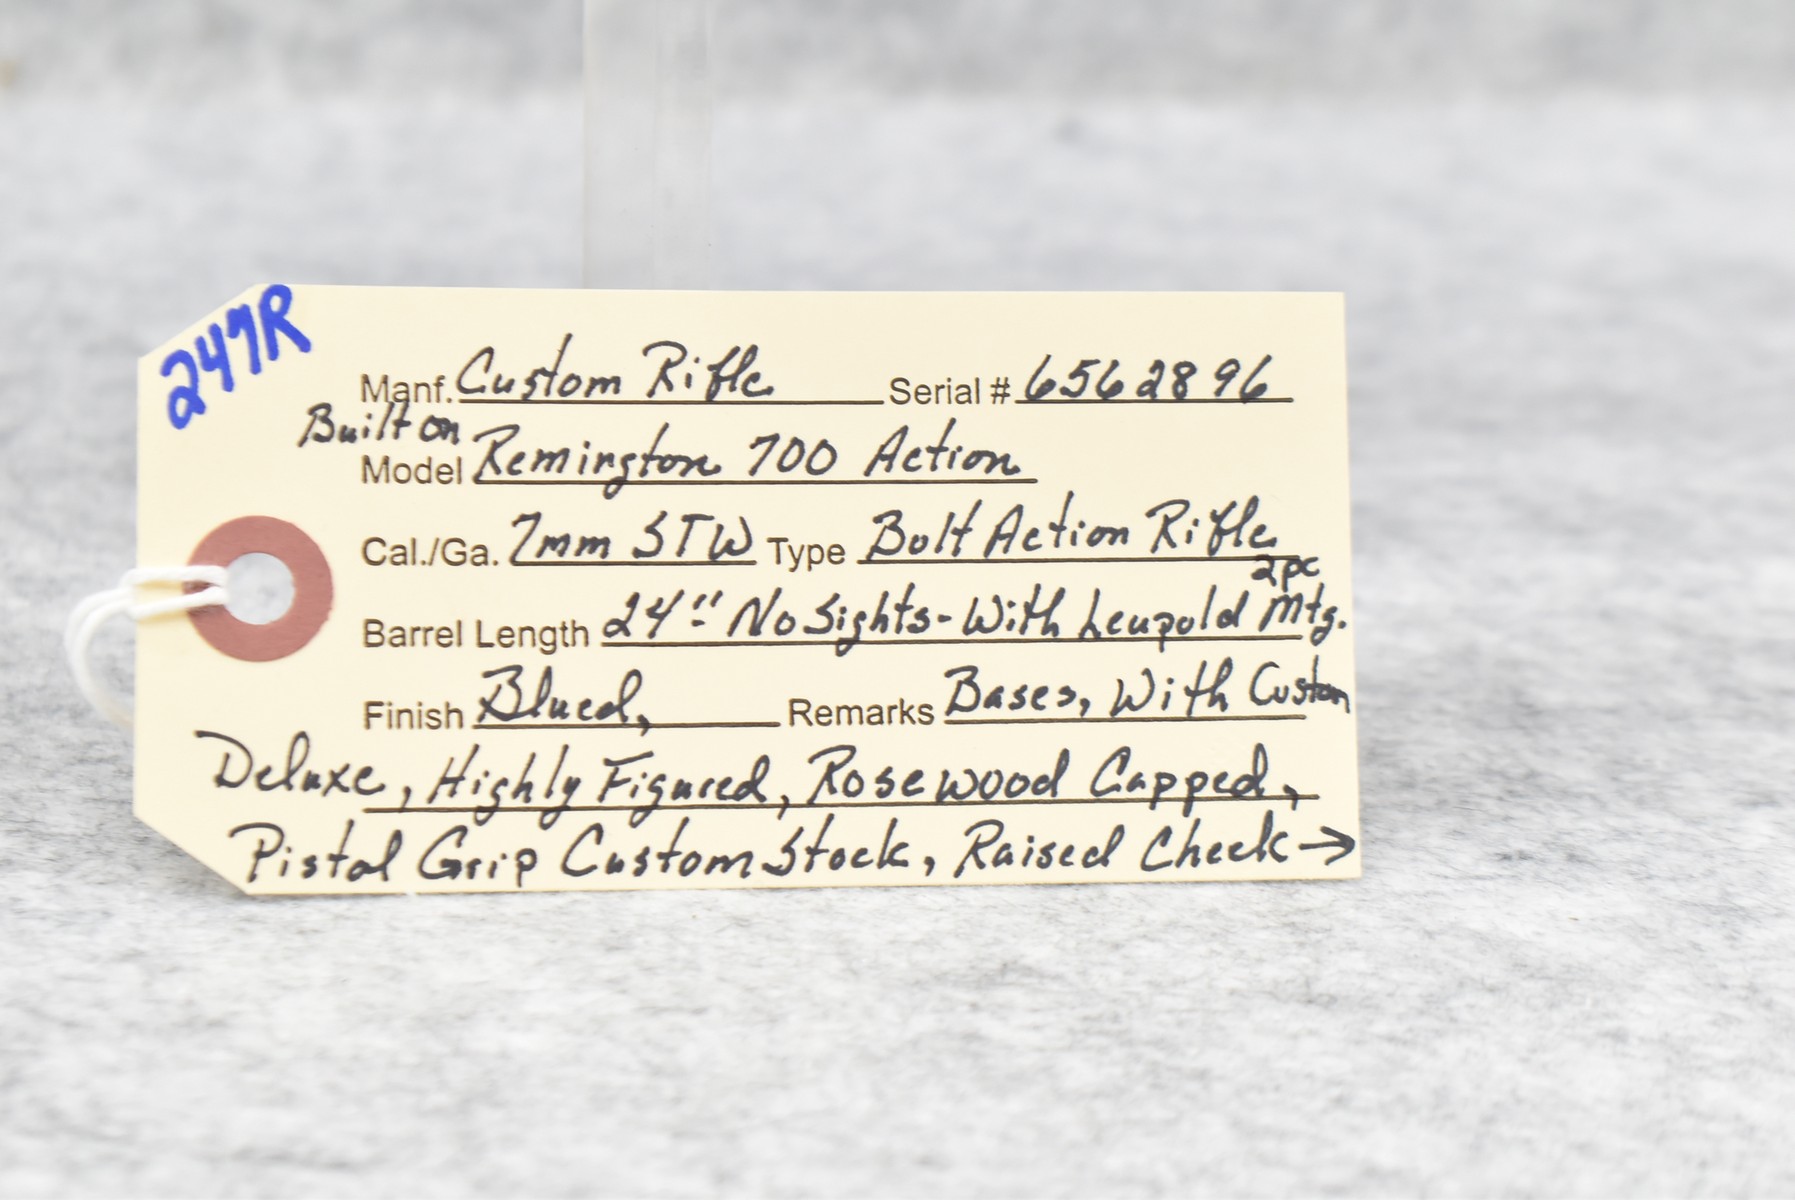 247R
Manf. Custom Rifle Serial # 6562896
Built on
Model Remington 700 Action
Cal./Ga. 7mm STW Type Bolt Action Rifle
2pc
Barrel Length 24" No Sights - With Leupold Mtg.
Finish Blued, Remarks Bases, With Custom
Deluxe, Highly Figured, Rosewood Capped,
Pistol Grip Custom Stock, Raised Cheek →